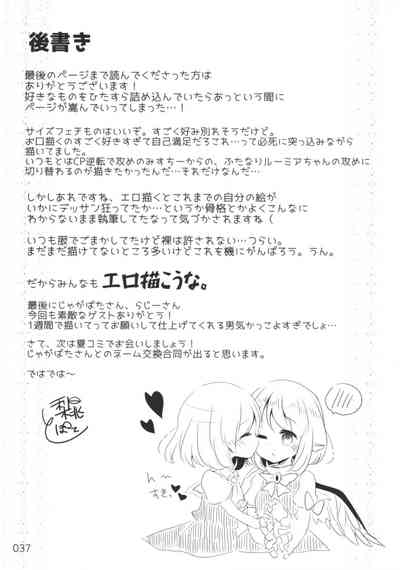 後書き
最後のページまで読んでくださった方は
ありがとうございます！
好きなものをひたすら詰め込んでいたらあっという間に
ページが嵩んでいってしまった…！
サイズフェチものはいいぞ。すごく好み別れそうだけど。
お口描くのすごく好きすぎて自己満足だろこれ…って必死に突っ込みながら
描いてました。
いつもとはCP逆転で攻めのみすちーからの、ふたなりルーミアちゃんの攻めに
切り替れるのが描きたかったんだ…それだけなんだ…
しかしあれですね、エロ描くとこれまでの自分の絵が
いかにデッサン狂ってたか…というか骨格とかよくこんなに
わからないまま執筆してたなって気づかされますね（
いつも服でごまかしてたけど裸は許されない…つらい。
まだまだ描けてないところ多いけどこれを機にがんばろう。うん。
だからみんなもエロ描こうな。
最後にじゃがばたさん、らじーさん
今回も素敵なゲストありがとう！
1週間で描いてってお願いして仕上げてくれる男気かっこよすぎでしょ…
さて、次は夏コミでお会いしましょう！
じゃがばたさんとのヌーム交換合同が出ると思います。
ではでは～
ん～
すき、
037